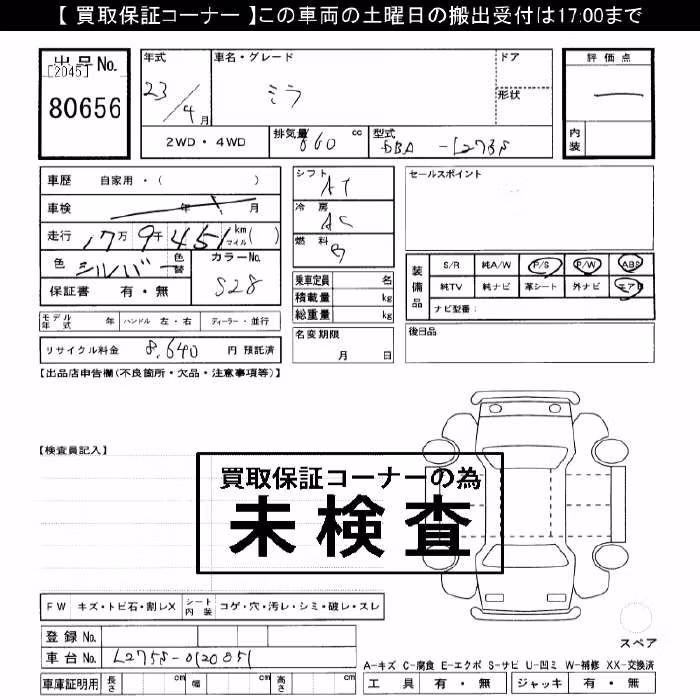 【 買取保証コーナー 】この車両の土曜日の搬出受付は17:00まで
出品No. [2045] 80656
年式 23/4月
車名・グレード ミラ
ドア
形状
評価点
内装
2WD・4WD
排気量 660 cc
型式 DBA-L275S
車歴 自家用・( )
車検 年 月
走行 17万9千451 km マイル( )
色 シルバー 色替 カラーNo. S28
保証書 有・無
モデル年式 年 ハンドル 左・右 ディーラー・並行
リサイクル料金 8,640 円 預託済
シフト AT
冷房 AC
燃料
乗車定員 名
積載量 kg
総重量 kg
名変期限 月 日
セールスポイント
装備品
S/R 純A/W P/S P/W ABS
純TV 純ナビ 革シート 外ナビ エアB
ナビ型番:
後日品
【出品店申告欄(不良箇所・欠品・注意事項等)】
【検査員記入】
買取保証コーナーの為
未検査
FW キズ・トビ石・割レX シート内装 コゲ・穴・汚レ・シミ・破レ・スレ
登録No.
車台No. L275S-0120851
車庫証明用 長さ cm 幅 cm 高さ cm
スペア
A-キズ C-腐食 E-エクボ S-サビ U-凹ミ W-補修 XX-交換済
工具 有・無 ジャッキ 有・無